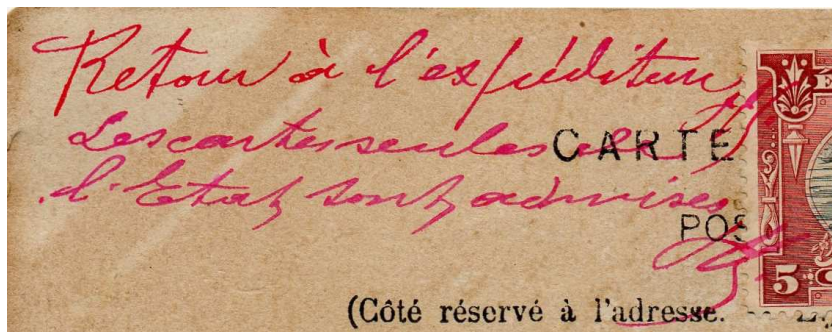 Retour à l'expéditeur
Les cartes seules de
l'Etat sont admises
CARTE
POS
5
(Côté réservé à l'adresse.